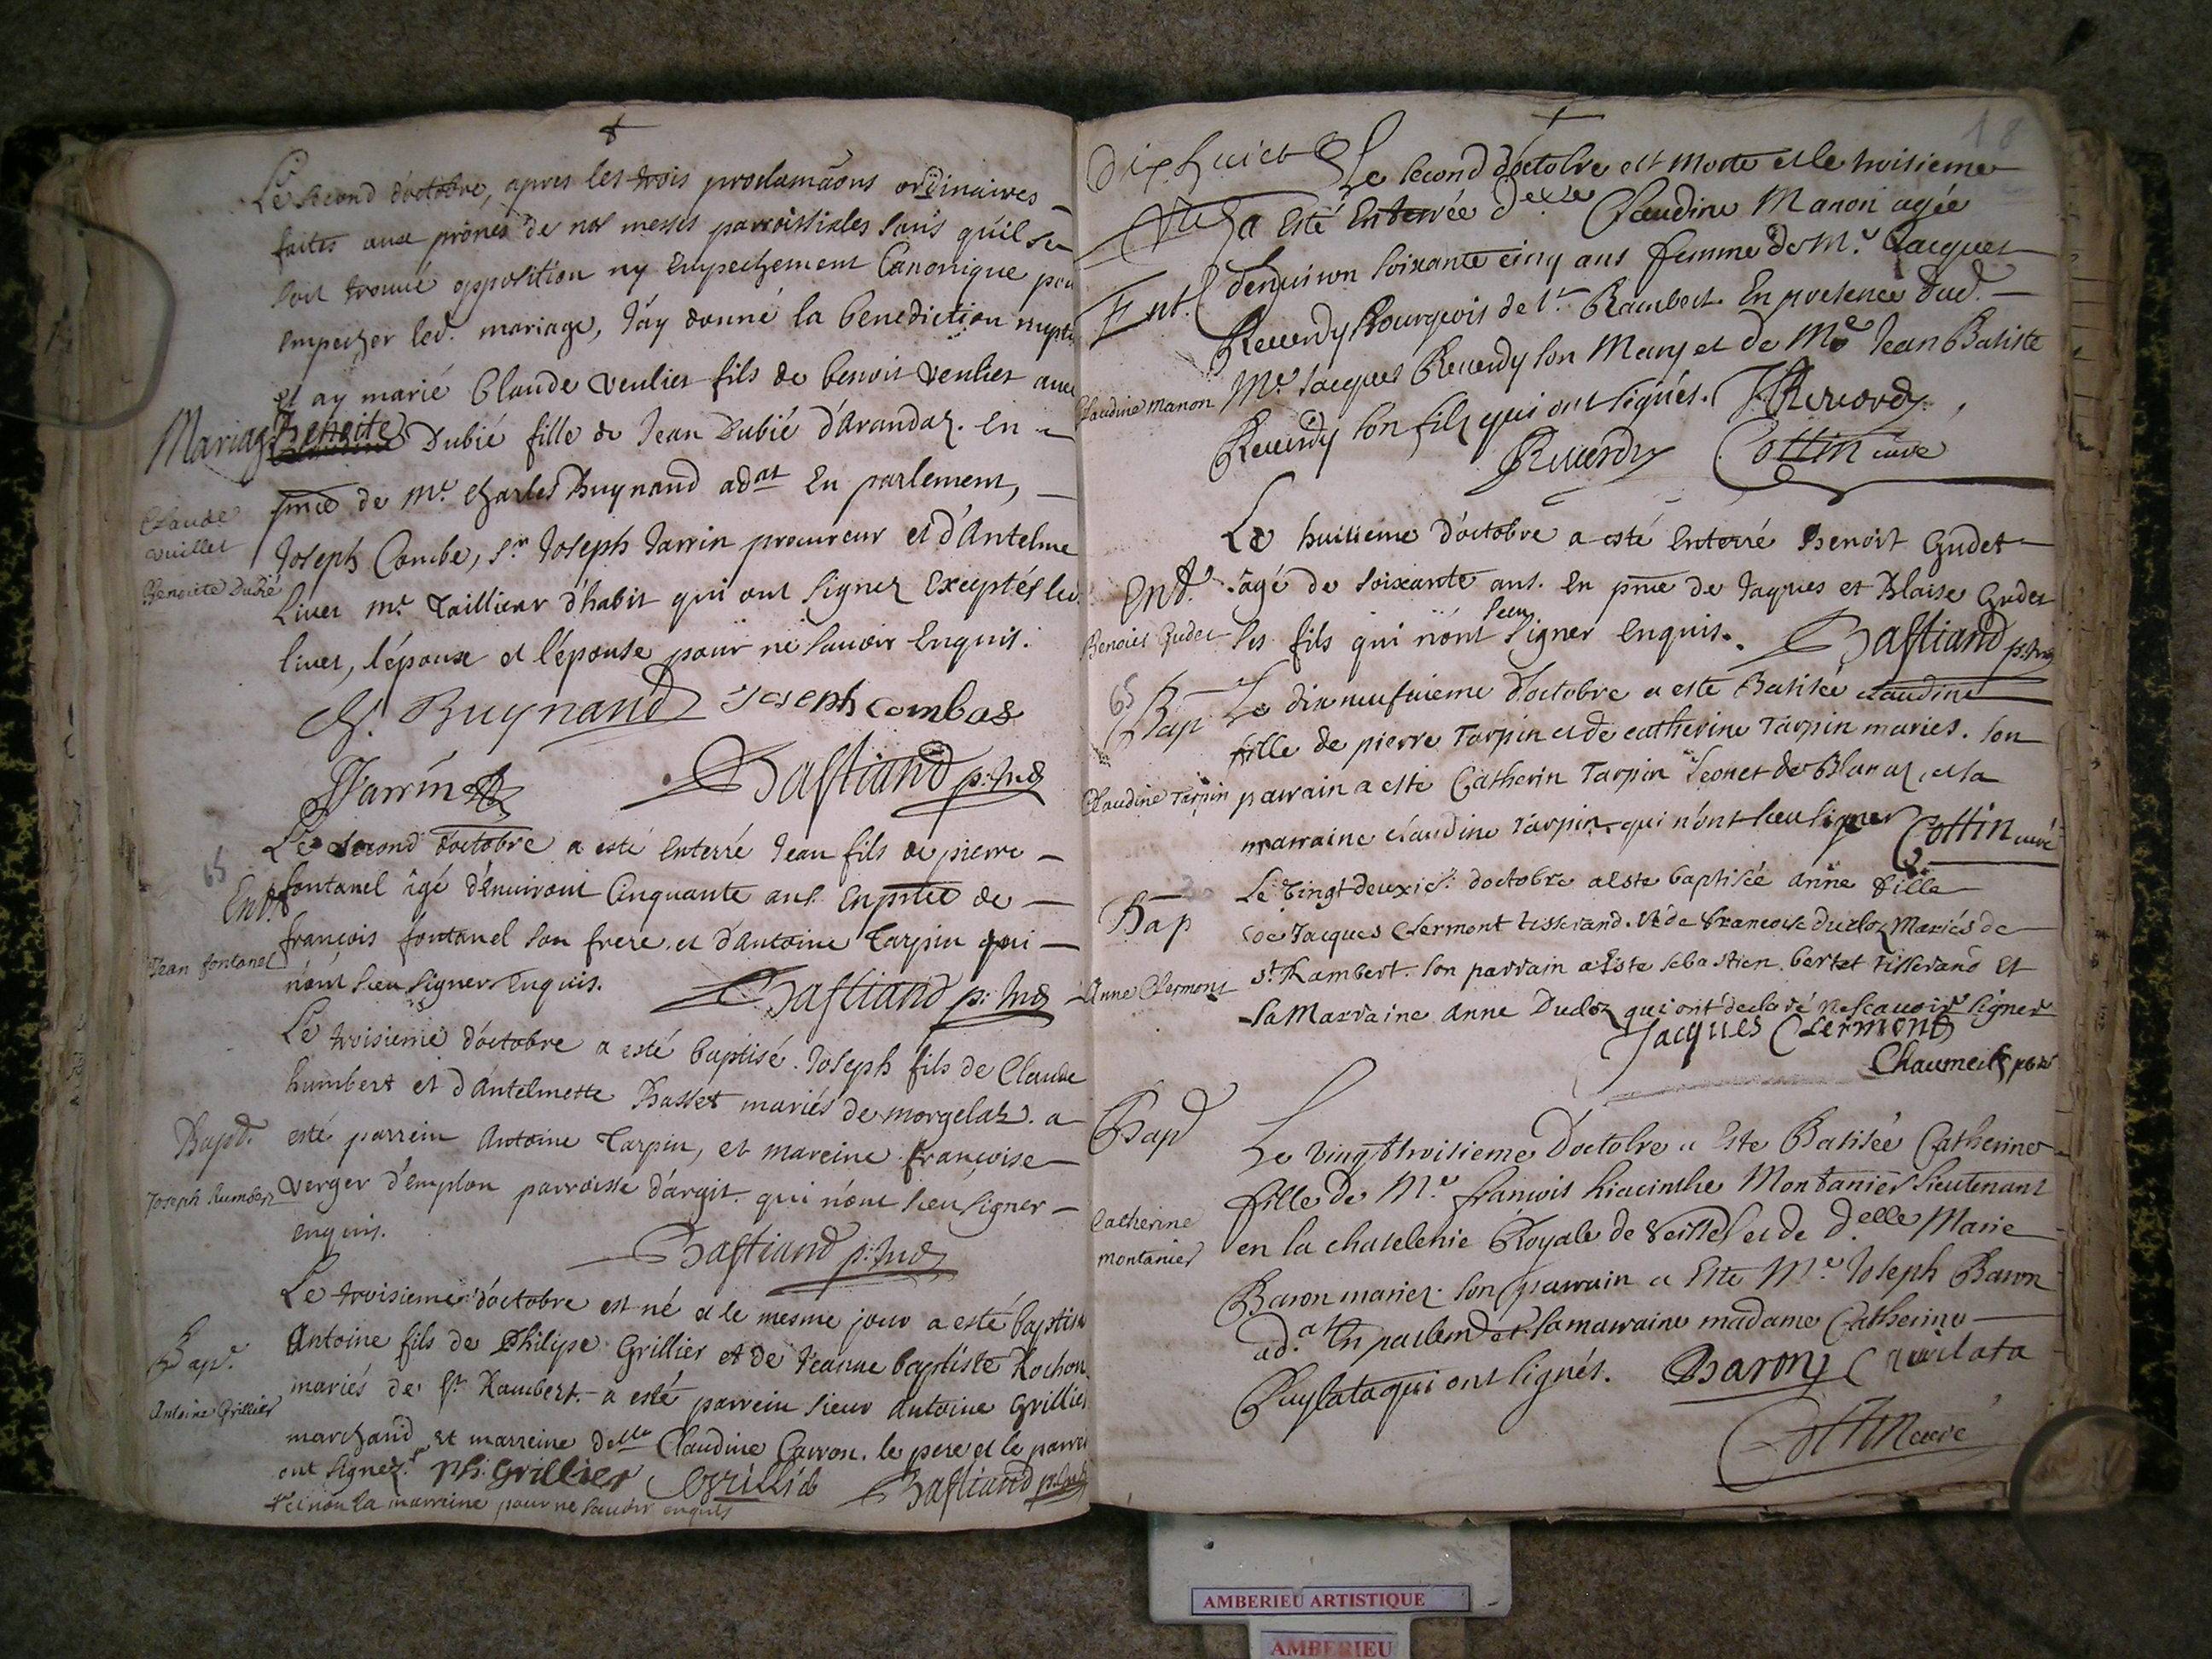 Le second d'octobre, apres les trois proclamãons ordinaires
faites aux prônes de nos messes parroissiales sans qu'il se
soit trouvé opposition ny empechement Canonique pou
empecher led. mariage, j'ay donné la benediction nupti
et ay marié Claude veulier fils de benoit veulier avec
Mariag Benoite Dubié fille de Jean Dubié d'Arandaz. en
pnce de Mr. Charles Buynand adat en parlement,
Claude
vuillet
Joseph Combe, Sr Joseph Jarrin procureur et d'Antelme
Benoite Dubié
Livet me. Taillieur d'habit qui ont signez exceptés led.
livet, l'époux et l'épouse pour ne savoir enquis.
Ch. Buynand Joseph combas
Jarrin Bastiand p: Ind
Le second d'octobre a esté enterré Jean fils de pierre
65
Ent. fontanel âgé d'environt Cinquante ans. En pnce de
françois fontanel son frere, et d'antoine Tarpin qui
Jean fontanel
n'ont sceu signer enquis. Bastiand p: Ind
Le troisieme d'octobre a esté baptisé Joseph fils de Claude
humbert et d'Antelmette Basset mariés de morgelaz. a
Bapt. esté parrein Antoine Tarpin, et mareine françoise
Joseph humbert verger d'emplon parroisse d'argit. qui n'ont sceu signer
enquis.
Bastiand p: Ind
Le troisieme d'octobre est né et le mesme jour a esté baptisé
Bapt. Antoine fils de Philipe Grillier et de Jeanne baptiste Rochon
mariés de St Rambert. a esté parrein sieur Antoine Grillier
Antoine Grillier
marchand et marreine delle Claudine Carron. le pere et le parre
ont signez. Ph. Grillier Grillié Bastiand p: Ind
et non la marreine pour ne savoir enquis
18
Dix huict Le second d'octobre est morte et le troisieme
a esté Enterrée delle Claudine Manon agée
Ent. denviron soixante cinq ans femme de Mr. Jacques
Reverdy Bourgeois de St. Rambert. En presence dud.
Mr. Jacques Reverdy son Mary et de Me Jean Batiste
Claudine Manon
Reverdy son fils qui ont signés. J Reverdy
Reverdy Cottin curé
Le huitieme d'octobre a esté enterré Benoit Gudet
Ent. âgé de soixante ans. en pnce de Jaques et Blaise Gudet
Benoict Gudet ses fils qui n'ont sceu signer enquis. Bastiand p: Ind
65
Bap Le dix neufuieme d'octobre a este Batisée claudine
fille de pierre Tarpin et de catherine Tarpin mariés. son
Claudine Tarpin parrain a esté Catherin Tarpin Leonet de Blanaz, et la
marraine claudine Tarpin qui n'ont sceu signer Cottin curé
Le vingt deuxie. doctobre a este baptisée anne fille
Bap de Jacques Clermont tisserand. et de francoise Ducloz Mariés de
Anne Clermont St. Rambert. son parrain a este sebastien bertet Tisserand Et
sa Marraine anne Ducloz qui ont declaré ne scavoir signer
Jacques Clermont
Chaumeil
Bap
Le vingt troisieme d'octobre a este Batisée Catherine
fille de Mr. francois hiacinthe Montanier Lieutenant
Catherine
montanier
en la chatelenie Royale de Seissel et de Delle Marie
Baron mariez. son parrain a este Mr. Joseph Baron
ad.at En parlemt. et sa marraine madame Catherine
Cuylata qui ont signés. Baron Cuilata
Cottin curé
AMBERIEU ARTISTIQUE
AMBERIEU